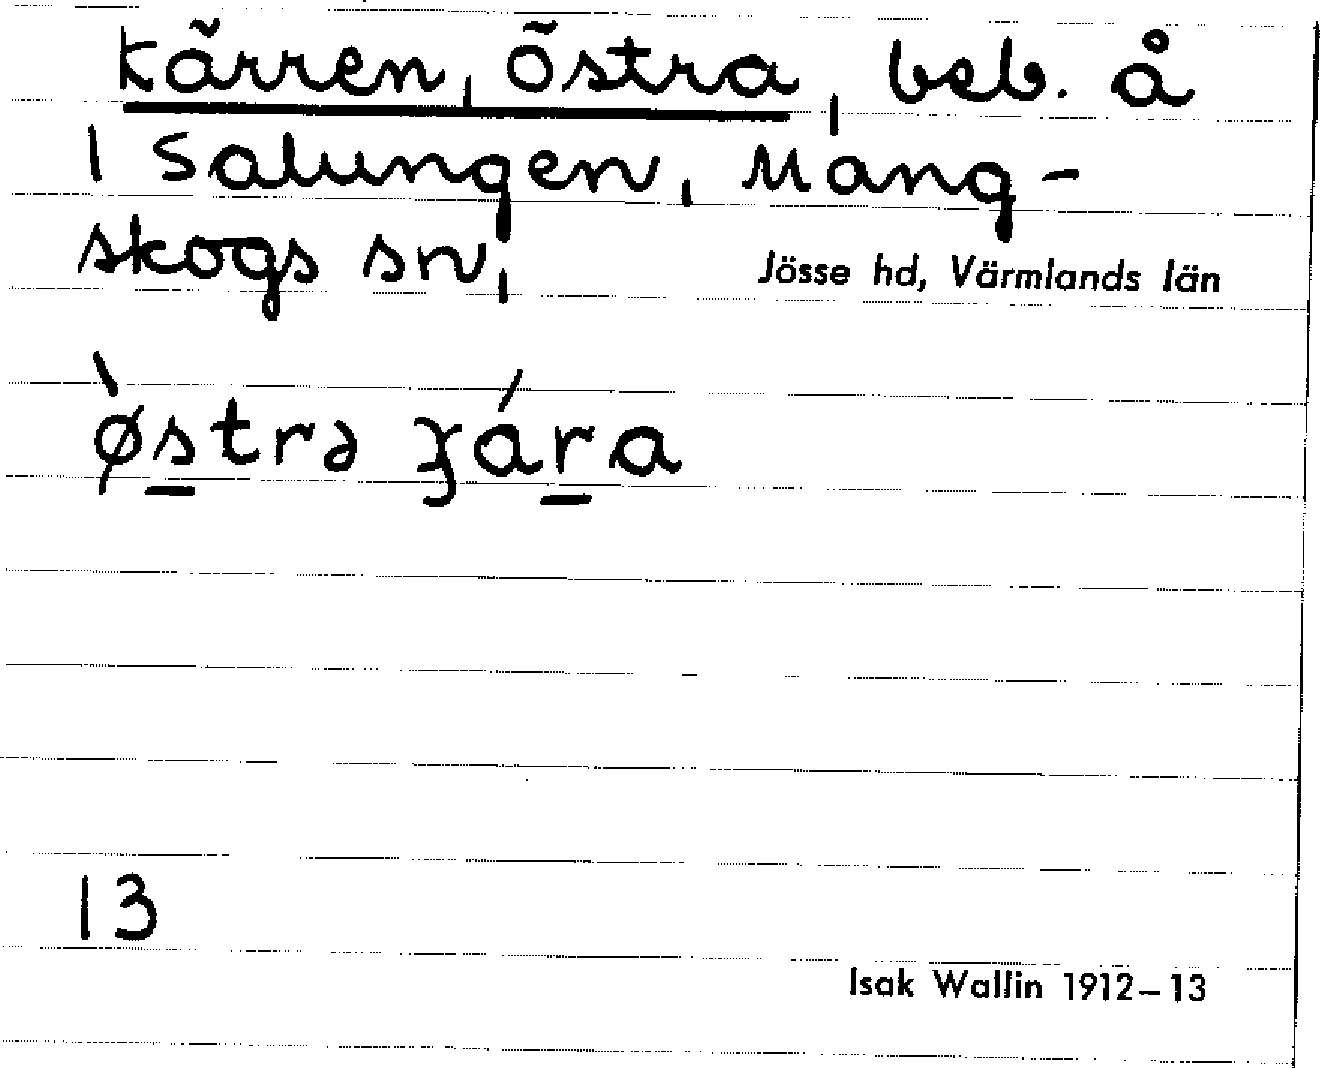 Kärren, Östra, beb. å
i Salungen, Mang-
skogs sn,
Jösse hd, Värmlands län
13
Isak Wallin 1912–13